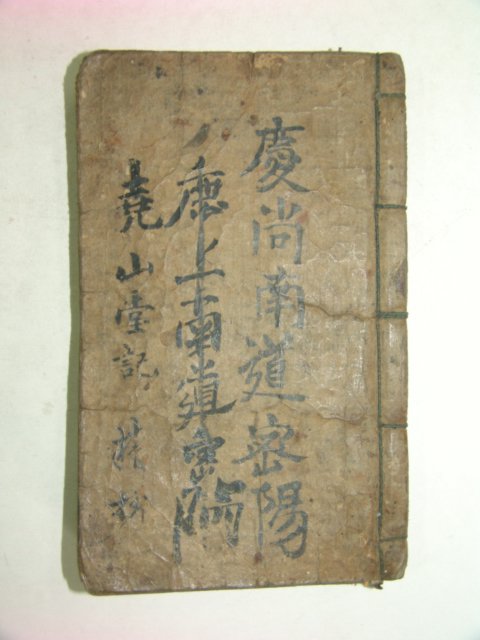 慶尚南道密陽
慶上南道密陽
堯山堂記